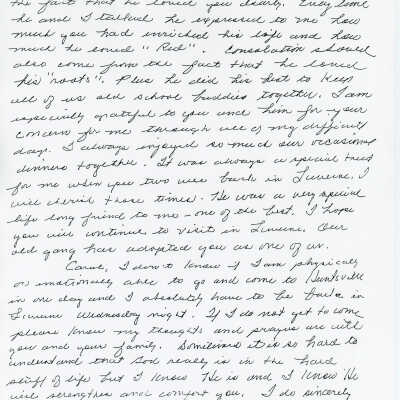 the fact that he loved you dearly. Every time
he and I talked he expressed to me how
much you had enriched his life and how
much he loved "Red". Consolation should
also come from the fact that he loved
his "roots". Plus he did his best to keep
all of us old school buddies together. I am
especially grateful to you and him for your
concern for me through all of my difficult
days. I always enjoyed so much our occasional
dinners together. It was always a special treat
for me when you two were back in Luverne. I
will cherish those times. He was a very special
life long friend to me - one of the best. I hope
you will continue to visit in Luverne. Our
old gang has adopted you as one of us.
Carol, I don't know if I am physically
or emotionally able to go and come to Huntsville
in one day and I absolutely have to be back in
Luverne Wednesday night. If I do not get to come
please know my thoughts and prayers are with
you and your family. Sometimes it is so hard to
understand that God really is in the hard
stuff of life but I know He is and I know He
will strengthen and comfort you. I do sincerely